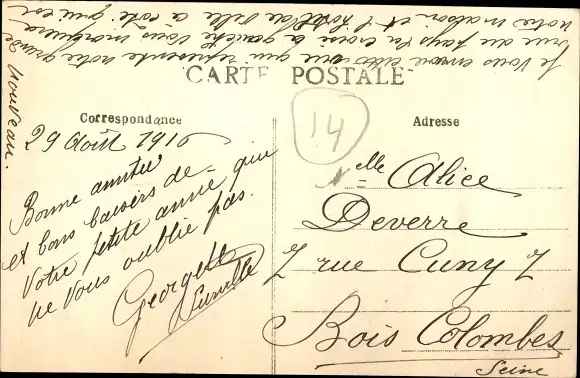 je vous envoie cette vue qui représente notre grande
rue du pays la croix à gauche vous marquera
notre maison et l'hôtel de ville à côté qui est
nouveau.
CARTE POSTALE
Correspondance
Adresse
14
29 Août 1916
Bonne amitié
et bons baisers de
Votre petite amie qui
ne vous oublie pas.
Georgette
Melle Alice
Deverre
7 rue Cuny 7
Bois Colombes
Seine